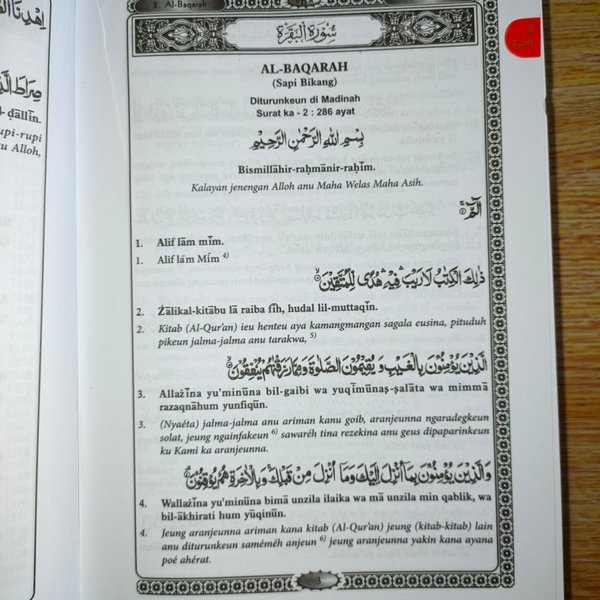 اِهْدِنَا
صِرَاطَ
- ḍāllīn.
upi-rupi
u Alloh,
2. Al-Baqarah
سُوْرَةُ الْبَقَرَةِ
AL-BAQARAH
(Sapi Bikang)
Diturunkeun di Madinah
Surat ka - 2 : 286 ayat
بِسْمِ اللّٰهِ الرَّحْمٰنِ الرَّحِيْمِ
Bismillāhir-raḥmānir-raḥīm.
Kalayan jenengan Alloh anu Maha Welas Maha Asih.
الۤمّۤ ۝١
1. Alif lām mīm.
1. Alif lám Mim 4)
ذٰلِكَ الْكِتٰبُ لَا رَيْبَ ۛ فِيْهِ ۛ هُدًى لِّلْمُتَّقِيْنَ ۝٢
2. Żālikal-kitābu lā raiba fīh, hudal lil-muttaqīn.
2. Kitab (Al-Qur'an) ieu henteu aya kamangmangan sagala eusina, pituduh
pikeun jalma-jalma anu tarakwa, 5)
الَّذِيْنَ يُؤْمِنُوْنَ بِالْغَيْبِ وَيُقِيْمُوْنَ الصَّلٰوةَ وَمِمَّا رَزَقْنٰهُمْ يُنْفِقُوْنَ ۝٣
3. Allażīna yu'minūna bil-gaibi wa yuqīmūnaṣ-ṣalāta wa mimmā
razaqnāhum yunfiqūn.
3. (Nyaéta) jalma-jalma anu ariman kanu goib, aranjeunna ngaradegkeun
solat, jeung ngainfakeun 6) sawaréh tina rezekina anu geus dipaparinkeun
ku Kami ka aranjeunna.
وَالَّذِيْنَ يُؤْمِنُوْنَ بِمَآ اُنْزِلَ اِلَيْكَ وَمَآ اُنْزِلَ مِنْ قَبْلِكَ ۚ وَبِالْاٰخِرَةِ هُمْ يُوْقِنُوْنَ ۝٤
4. Wallażīna yu'minūna bimā unzila ilaika wa mā unzila min qablik, wa
bil-ākhirati hum yūqinūn.
4. Jeung aranjeunna ariman kana kitab (Al-Qur'an) jeung (kitab-kitab) lain
anu diturunkeun saméméh anjeun 6) jeung aranjeunna yakin kana ayana
poé ahérat.
3